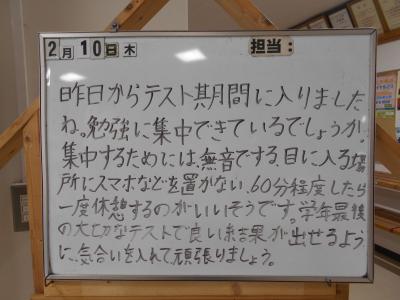 2月10日木 担当:
昨日からテスト期間に入りました
ね。勉強に集中できているでしょうか。
集中するためには、無音でする、目に入る場
所にスマホなどを置かない、60分程度したら
一度休憩するのがいいそうです。学年最後
の大切なテストで良い結果が出せるよう
に、気合いを入れて頑張りましょう。